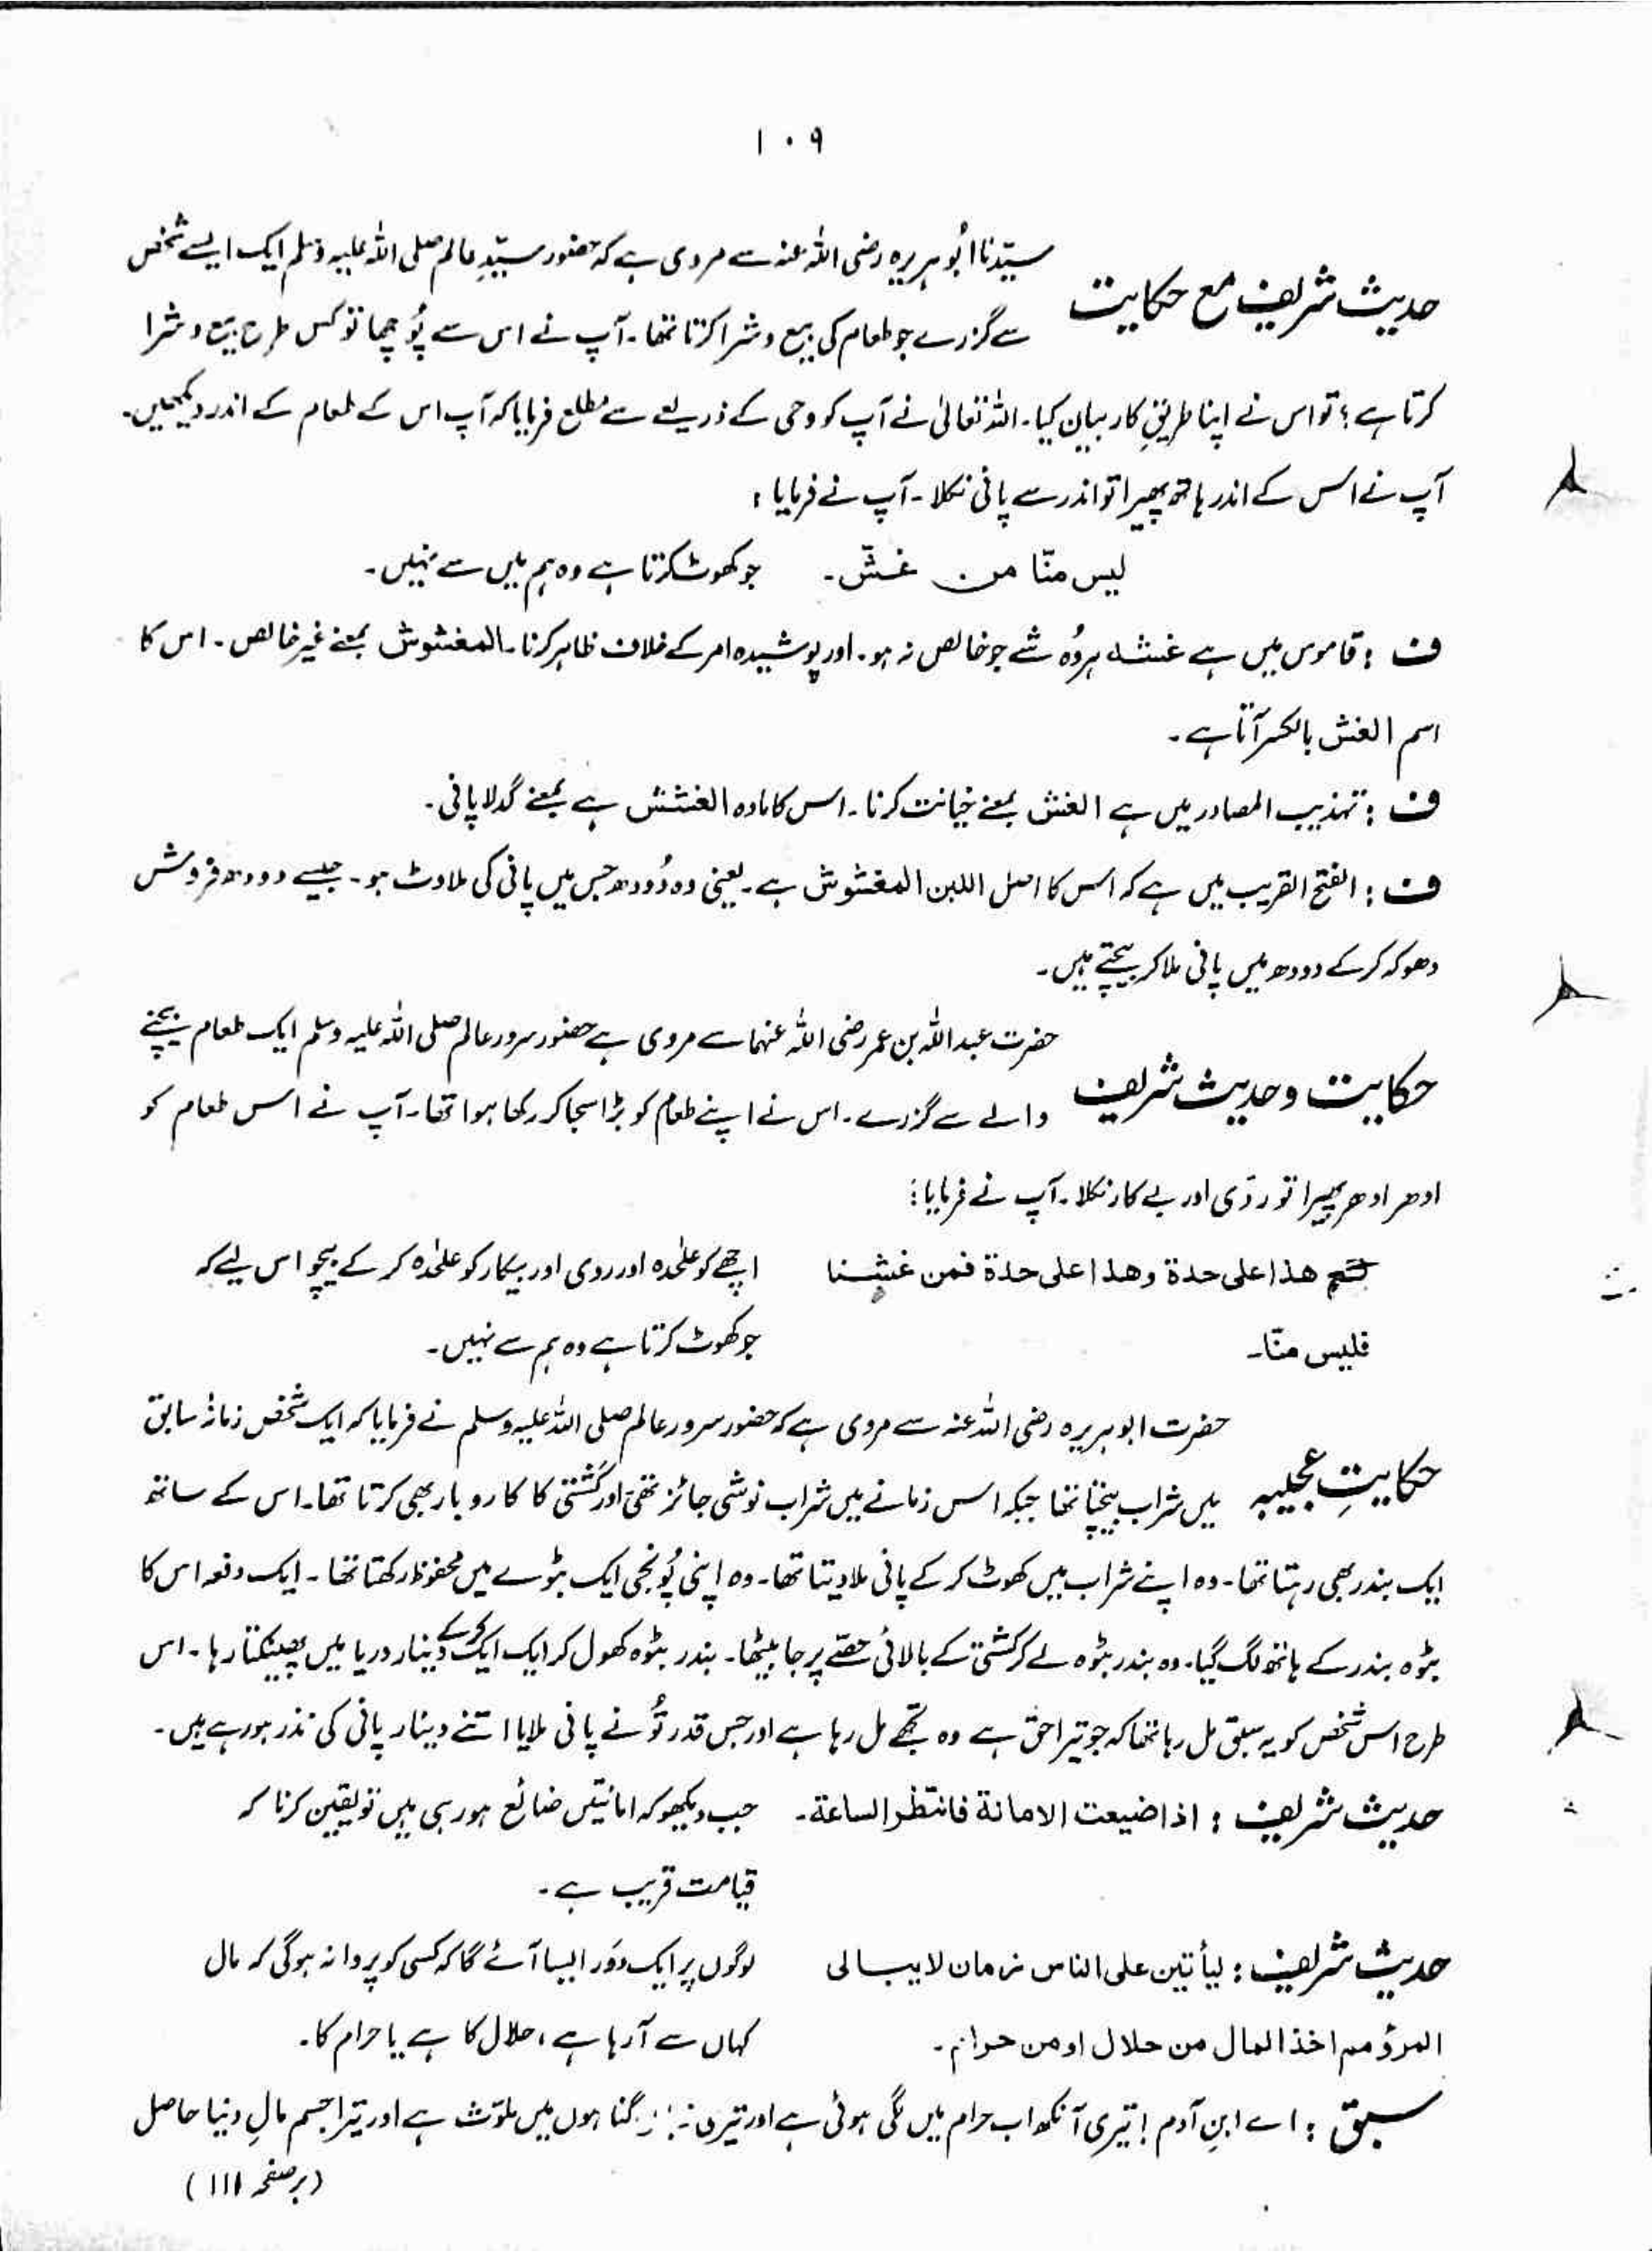 ۱۰۹
حدیث شریف مع حکایت سیّدنا ابُوہریرہ رضی اللہ عنہ سے مروی ہے کہ حضور سیّدِ عالم صلی اللہ علیہ وسلم ایک ایسے شخص
سے گزرے جو طعام کی بیع و شرا کرتا تھا۔ آپ نے اس سے پُوچھا تو کس طرح بیع و شرا
کرتا ہے؟ تو اس نے اپنا طریقِ کار بیان کیا۔ اللہ تعالیٰ نے آپ کو وحی کے ذریعے سے مطلع فرمایا کہ آپ اس کے طعام کے اندر دیکھیں۔
آپ نے اس کے اندر ہاتھ پھیرا تو اندر سے پانی نکلا۔ آپ نے فرمایا:
لیس منّا من غشّ۔ جو کھوٹ کرتا ہے وہ ہم میں سے نہیں۔
ف : قاموس میں ہے غشہ ہر وُہ شے جو خالص نہ ہو۔ اور پوشیدہ امر کے خلاف ظاہر کرنا۔ المغشوش بمعنے غیر خالص۔ اس کا
اسم الغش بالکسر آتا ہے۔
ف : تہذیب المصادر میں ہے الغش بمعنے خیانت کرنا۔ اس کا مادہ الغشش ہے بمعنے گدلا پانی۔
ف : الفتح القریب میں ہے کہ اس کا اصل اللبن المغشوش ہے۔ یعنی وہ دُودھ جس میں پانی کی ملاوٹ ہو۔ جیسے دودھ فروش
دھوکہ کرکے دودھ میں پانی ملا کر بیچتے ہیں۔
حکایت و حدیث شریف حضرت عبداللہ بن عمر رضی اللہ عنہما سے مروی ہے حضور سرور عالم صلی اللہ علیہ وسلم ایک طعام بیچنے
والے سے گزرے۔ اس نے اپنے طعام کو بڑا سجا کر رکھا ہوا تھا۔ آپ نے اس طعام کو
ادھر ادھر پھیرا تو ردّی اور بے کار نکلا۔ آپ نے فرمایا:
ھذا علی حدۃ وھذا علی حدۃ فمن غشنا اچھے کو علیٰحدہ اور ردی اور بیکار کو علیٰحدہ کر کے بیچو اس لیے کہ
فلیس منّا۔ جو کھوٹ کرتا ہے وہ ہم سے نہیں۔
حکایتِ عجیبہ حضرت ابوہریرہ رضی اللہ عنہ سے مروی ہے کہ حضور سرور عالم صلی اللہ علیہ وسلم نے فرمایا کہ ایک شخص زمانۂ سابق
میں شراب بیچتا تھا جبکہ اس زمانے میں شراب نوشی جائز تھی اور کشتی کا کاروبار بھی کرتا تھا۔ اس کے ساتھ
ایک بندر بھی رہتا تھا۔ وہ اپنے شراب میں کھوٹ کر کے پانی ملا دیتا تھا۔ وہ اپنی پُونجی ایک بٹوے میں محفوظ رکھتا تھا۔ ایک دفعہ اس کا
بٹوہ بندر کے ہاتھ لگ گیا۔ وہ بندر بٹوہ لے کر کشتی کے بالائی حصّے پر جا بیٹھا۔ بندر بٹوہ کھول کر ایک ایک کرکے دینار دریا میں پھینکتا رہا۔ اس
طرح اس شخص کو یہ سبق مل رہا تھا کہ جو تیرا حق ہے وہ تجھے مل رہا ہے اور جس قدر تُو نے پانی ملایا اتنے دینار پانی کی نذر ہو رہے ہیں۔
حدیث شریف : اذا ضیعت الامانۃ فانتظر الساعۃ۔ جب دیکھو کہ امانتیں ضائع ہو رہی ہیں تو یقین کرنا کہ
قیامت قریب ہے۔
حدیث شریف : لیأتین علی الناس زمان لا یبالی لوگوں پر ایک دَور ایسا آئے گا کہ کسی کو پروا نہ ہوگی کہ مال
المرؤ مم اخذ المال من حلال او من حرام۔ کہاں سے آرہا ہے، حلال کا ہے یا حرام کا۔
سبق : اے ابنِ آدم! تیری آنکھ اب حرام میں لگی ہوئی ہے اور تیری گناہوں میں ملوّث ہے اور تیرا جسم مالِ دنیا حاصل
(بر صفحہ ۱۱۱)